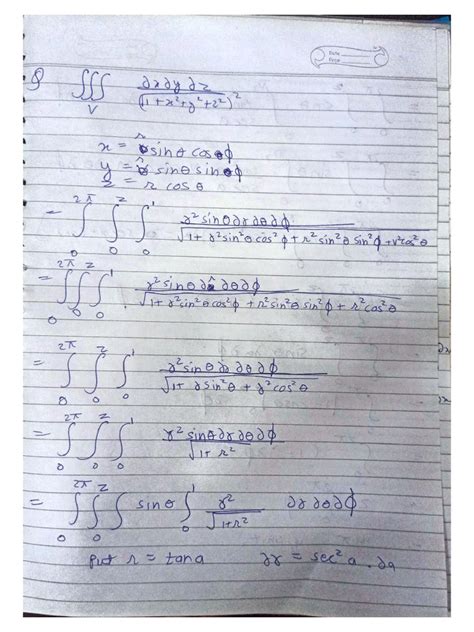 Date
Q ∭_V ∂x∂y∂z / (1+x²+y²+z²)²
x = r sinθ cosϕ
y = r sinθ sinϕ
z = r cosθ
= ∫_0^{2π} ∫_0^z ∫_0^1 r² sinθ∂r∂θ∂ϕ / √(1+ r²sin²θcos²ϕ + r²sin²θ sin²ϕ + r²cos²θ)
= ∫_0^{2π} ∫_0^z ∫_0^1 r² sinθ ∂r ∂θ∂ϕ / √(1+ r²sin²θcos²ϕ + r²sin²θ sin²ϕ + r²cos²θ)
= ∫_0^{2π} ∫_0^z ∫_0^1 r² sinθ ∂r ∂θ ∂ϕ / √(1+ r sin²θ + r²cos²θ)
= ∫_0^{2π} ∫_0^z ∫_0^1 r² sinθ∂r∂θ∂ϕ / √(1+ r²)
= ∫_0^{2π} ∫_0^z ∫ sinθ ∫_0^1 r² / √(1+r²) ∂r ∂θ∂ϕ
Put r = tan a ∂r = sec² a . ∂a